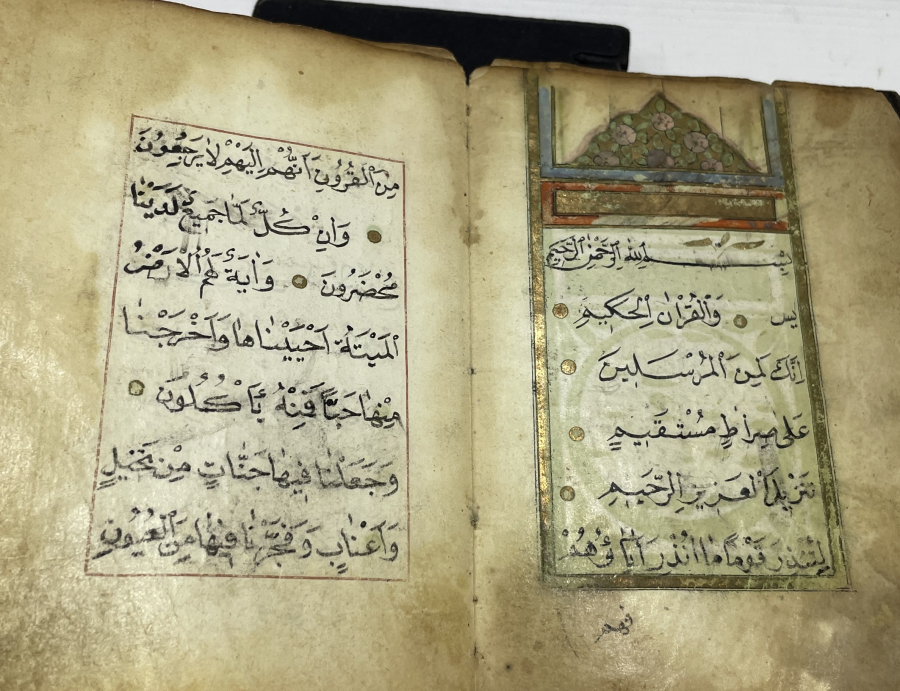 بسم الله الرحمن الرحيم
يس وَالْقُرْاٰنِ الْحَكِيمِ
اِنَّكَ لَمِنَ الْمُرْسَلِينَ
عَلٰى صِرَاطٍ مُسْتَقِيمٍ
تَنْزِيلَ الْعَزِيزِ الرَّحِيمِ
لِتُنْذِرَ قَوْمًا مَا اُنْذِرَ اٰبَاؤُهُمْ
فهم
مِنَ الْقُرُونِ اَنَّهُمْ اِلَيْهِمْ لَا يَرْجِعُونَ
وَاِنْ كُلٌّ لَمَّا جَمِيعٌ لَدَيْنَا
مُحْضَرُونَ وَاٰيَةٌ لَهُمُ الْاَرْضُ
الْمَيْتَةُ اَحْيَيْنَاهَا وَاَخْرَجْنَا
مِنْهَا حَبًّا فَمِنْهُ يَأْكُلُونَ
وَجَعَلْنَا فِيهَا جَنَّاتٍ مِنْ نَخِيلٍ
وَاَعْنَابٍ وَفَجَّرْنَا فِيهَا مِنَ الْعُيُونِ